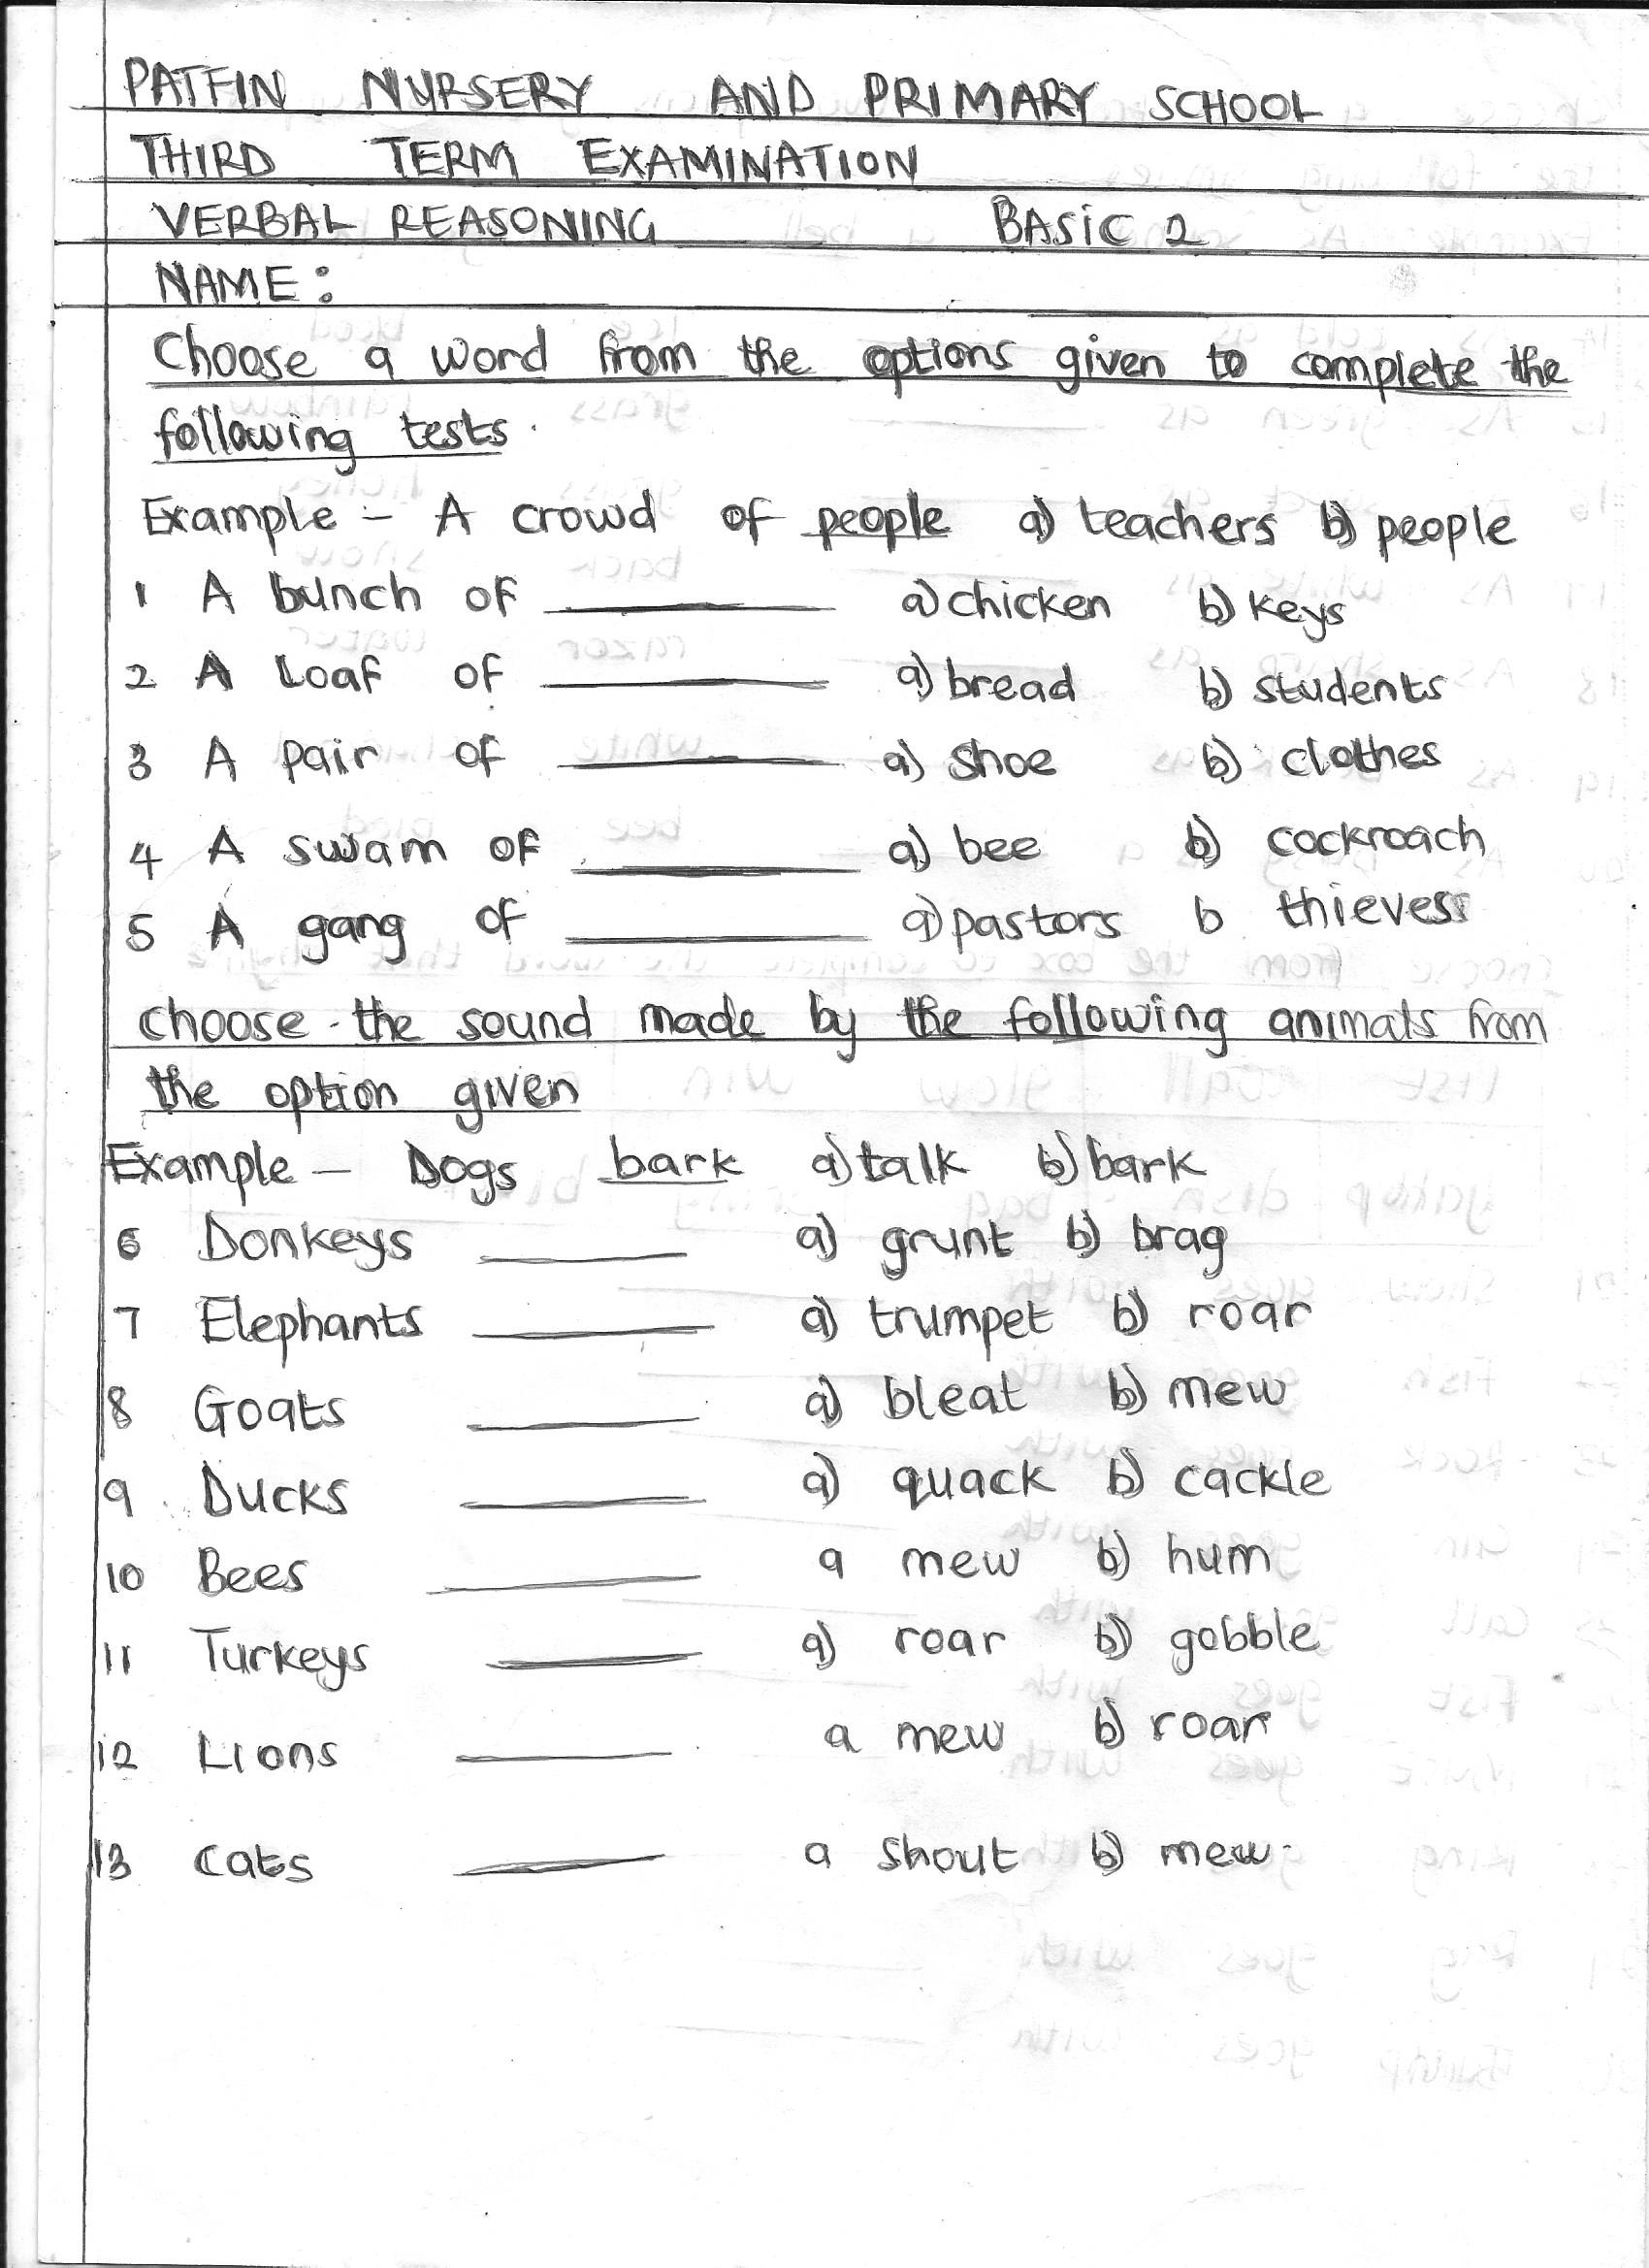 PATFIN NURSERY AND PRIMARY SCHOOL
THIRD TERM EXAMINATION
VERBAL REASONING BASIC 2
NAME:
Choose a word from the options given to complete the
following tests.
Example - A crowd of people a) teachers b) people
1 A bunch of ______ a) chicken b) keys
2 A Loaf of ______ a) bread b) students
3 A pair of ______ a) shoe b) clothes
4 A swam of ______ a) bee b) cockroach
5 A gang of ______ a) pastors b thieves
choose the sound made by the following animals from
the option given
Example - Dogs bark a) talk b) bark
6 Donkeys ______ a) grunt b) brag
7 Elephants ______ a) trumpet b) roar
8 Goats ______ a) bleat b) mew
9 Ducks ______ a) quack b) cackle
10 Bees ______ a mew b) hum
11 Turkeys ______ a) roar b) gobble
12 Lions ______ a mew b) roar
13 cats ______ a shout b) mew